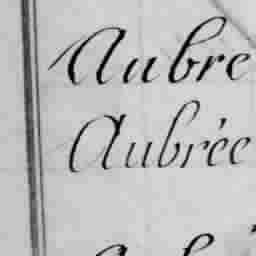 Aubre
Aubrée